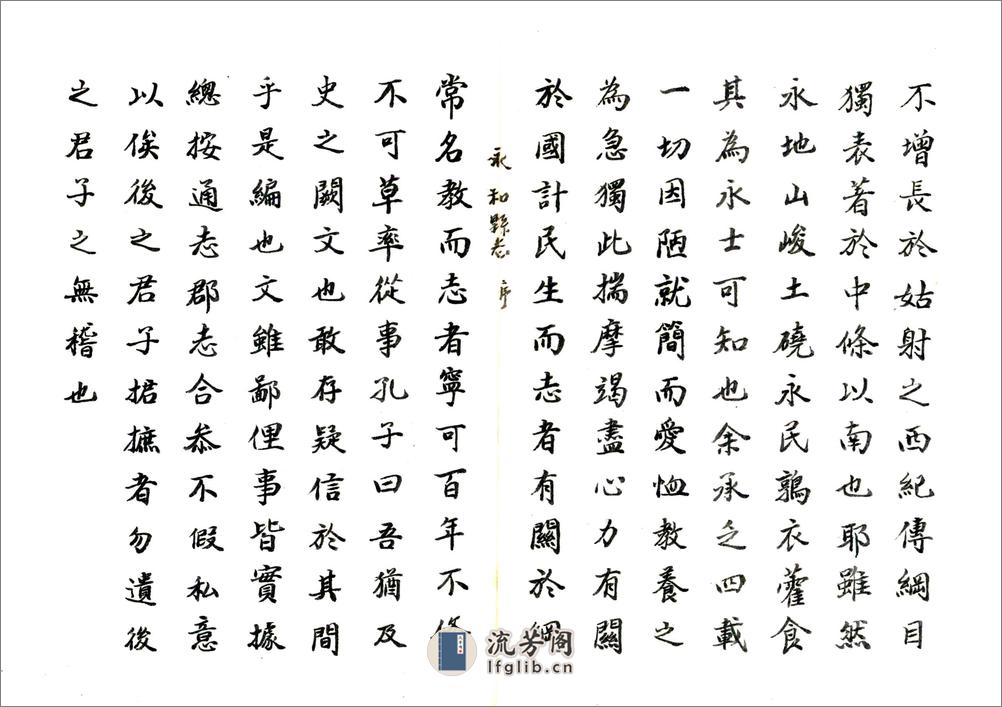 不增長於姑射之西紀傳綱目
獨表著於中條以南也耶雖然
永地山峻土磽永民鶉衣藿食
其為永士可知也余承乏四載
一切因陋就簡而愛恤教養之
為急獨此揣摩竭盡心力有關
於國計民生而志者有關於綱
永和縣志 序
常名教而志者寧可百年不修
不可草率從事孔子曰吾猶及
史之闕文也敢存疑信於其間
乎是編也文雖鄙俚事皆實據
總按通志郡志合叅不假私意
以俟後之君子捃摭者勿遺後
之君子之無稽也
流芳阁
lfglib.cn